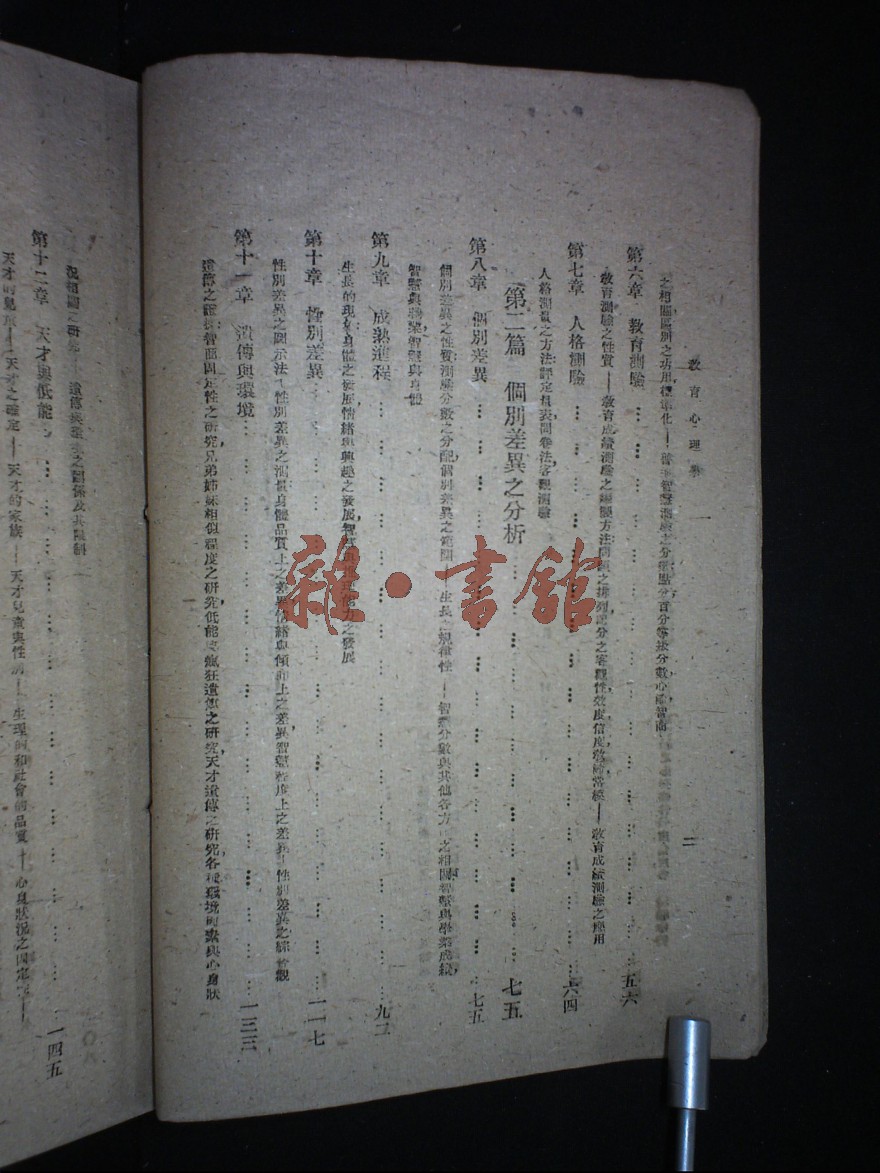 教育心理學
二
之相關區別之功用標準化——普通智慧測驗之分數點分百分等級分數心齡智商
第六章 教育測驗 五六
教育測驗之性質——教育成績測驗之編製方法問題之排列記分之客觀性效度信度常模——教育成績測驗之應用
第七章 人格測驗 六四
人格測量之方法評定量表問卷法客觀測驗
第二篇 個別差異之分析 七五
第八章 個別差異 七五
個別差異之性質測驗分數之分配個別差異之範圍——生長之規律性——智慧分數與其他各方之相關智慧與學業成績,
智慧與職業智慧與身體
第九章 成熟進程 九二
生長的現象身體之發展情緒與興趣之發展智慧之發展
第十章 性別差異 一一七
性別差異之圖示法——性別差異之測量身體品質上之差異情緒與傾向上之差異智慧程度上之差異——性別差異之綜合觀
第十一章 遺傳與環境 一三三
遺傳之證據智商固定性之研究兄弟姊妹相似程度之研究低能瘋狂遺傳之研究天才遺傳之研究各種環境因素與心身狀
況相關之研究——遺傳與環境之關係及其限制
第十二章 天才與低能 一四五
天才的兒童——天才之確定——天才的家族——天才兒童與性別——生理的和社會的品質——心身狀況之固定性——
雜·書館